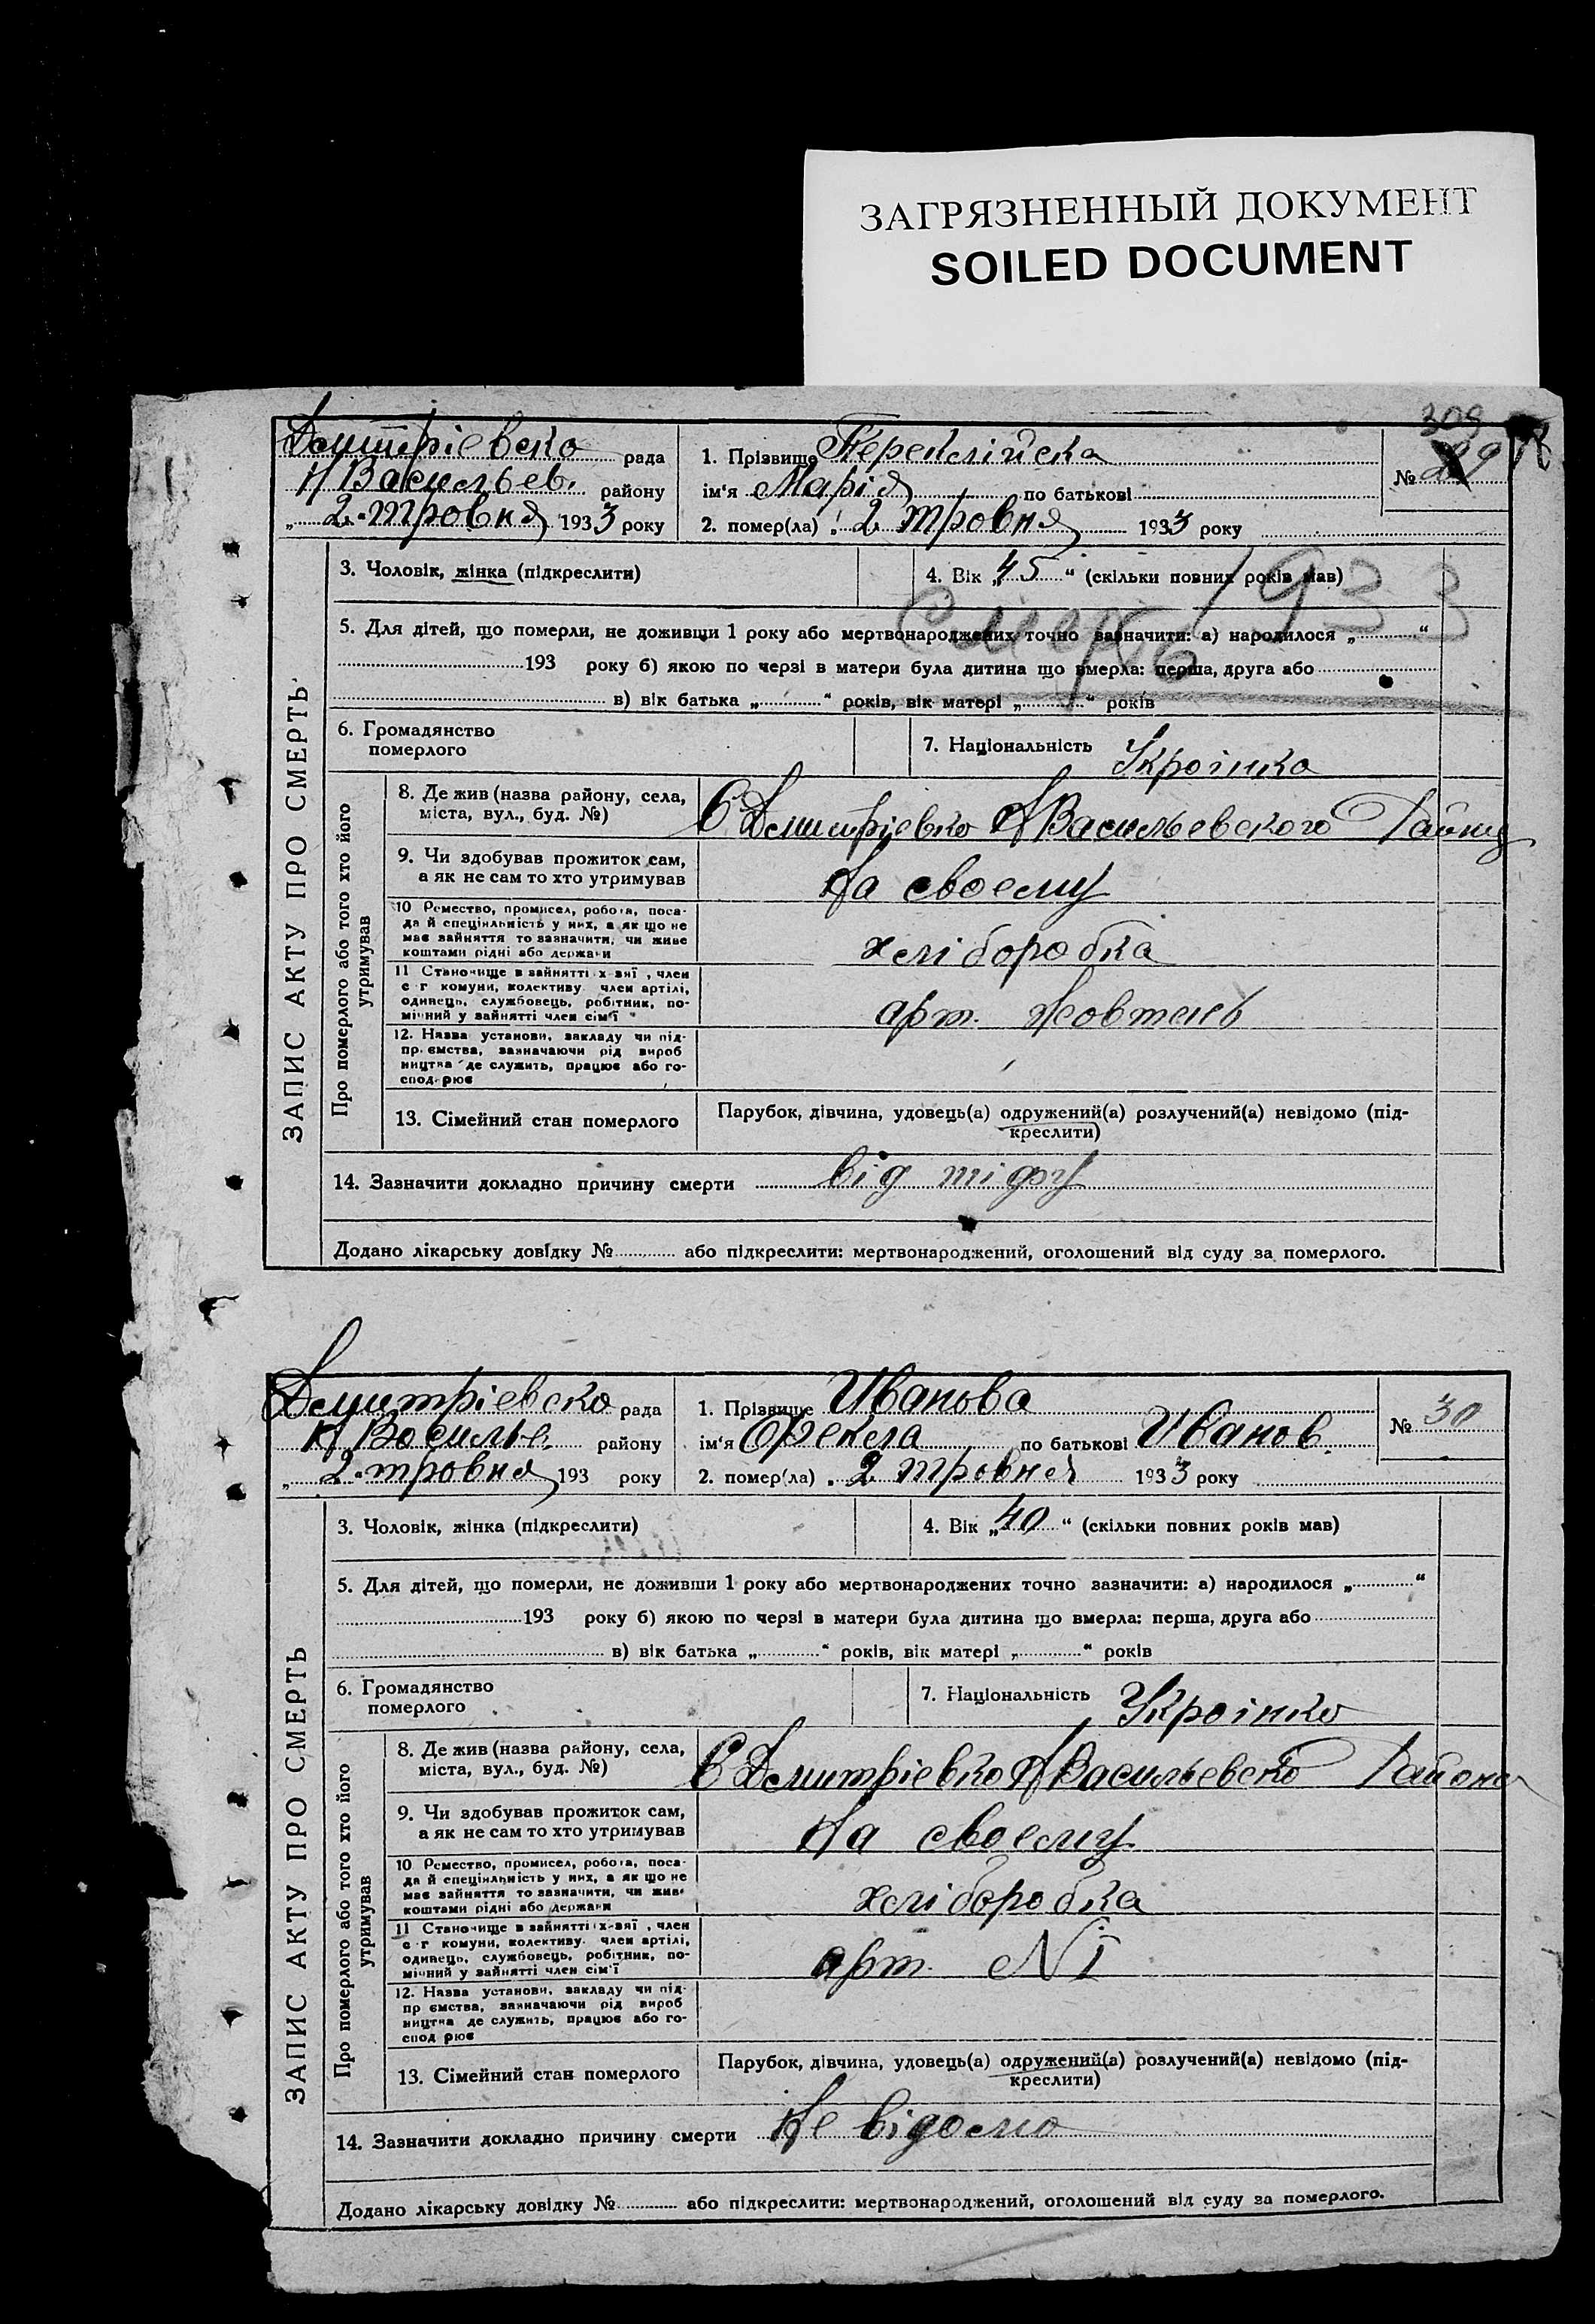 ЗАГРЯЗНЕННЫЙ ДОКУМЕНТ
SOILED DOCUMENT
309
Дмитріевско рада
Н Васильев. району
„ 2 " тровня 1933 року
1. Прізвище
ім'я Марія по батькові
2. помер(ла) „ 2 тровня 1933 року
№ 29
ЗАПИС АКТУ ПРО СМЕРТЬ
3. Чоловік, жінка (підкреслити)
4. Вік „ 45 " (скільки повних років мав)
Смерть 1933
5. Для дітей, що померли, не доживши 1 року або мертвонароджених точно зазначити: а) народилося „ "
193 року б) якою по черзі в матери була дитина що вмерла: перша, друга або
в) вік батька „ " років, вік матері „ " років
6. Громадянство
померлого
7. Національність Укроінка
Про померлого або того хто його
утримував
8. Де жив (назва району, села,
міста, вул., буд. №)
С Дмитріевко Н Васильевского
9. Чи здобував прожиток сам,
а як не сам то хто утримував
На своему
10 Ремество, промисел, робота, поса-
да й спеціяльність у них, а як що не
має зайняття то зазначити, чи живе
коштами рідні або держави
хліборобка
11 Становище в зайнятті х-зяї , член
с г комуни, колективу член артілі,
одинець, службовець, робітник, по-
мічний у зайнятті член сім'ї
арт. Жовтень
12. Назва установи, закладу чи під-
пр.ємства, зазначаючи рід вироб
ництва де служить, працює або го-
спод-рює
13. Сімейний стан померлого
Парубок, дівчина, удовець(а) одружений(а) розлучений(а) невідомо (під-
креслити)
14. Зазначити докладно причину смерти від
Додано лікарську довідку № або підкреслити: мертвонароджений, оголошений від суду за померлого.
Дмитріевско рада
Н Восилье. району
„ 2 " тровня 193 року
1. Прізвище Иванова
ім'я Фрекла по батькові Иванов
2. помер(ла) „ 2 тровня 1933 року
№ 30
ЗАПИС АКТУ ПРО СМЕРТЬ
3. Чоловік, жінка (підкреслити)
4. Вік „ 40 " (скільки повних років мав)
5. Для дітей, що померли, не доживши 1 року або мертвонароджених точно зазначити: а) народилося „ "
193 року б) якою по черзі в матери була дитина що вмерла: перша, друга або
в) вік батька „ " років, вік матері „ " років
6. Громадянство
померлого
7. Національність Укроінко
Про померлого або того хто його
утримував
8. Де жив (назва району, села,
міста, вул., буд. №)
С Дмитріевко Н Васильевско Района
9. Чи здобував прожиток сам,
а як не сам то хто утримував
На своему
10 Ремество, промисел, робота, поса-
да й спеціяльність у них, а як що не
має зайняття то зазначити, чи живе
коштами рідні або держави
хліборобка
11 Становище в зайнятті х-зяї , член
с г комуни, колективу член артілі,
одинець, службовець, робітник, по-
мічний у зайнятті член сім'ї
арт. № 1
12. Назва установи, закладу чи під-
пр ємства, зазначаючи рід вироб
ництва де служить, працює або го-
спод рює
13. Сімейний стан померлого
Парубок, дівчина, удовець(а) одружений(а) розлучений(а) невідомо (під-
креслити)
14. Зазначити докладно причину смерти Не відомо
Додано лікарську довідку № або підкреслити: мертвонароджений, оголошений від суду за померлого.